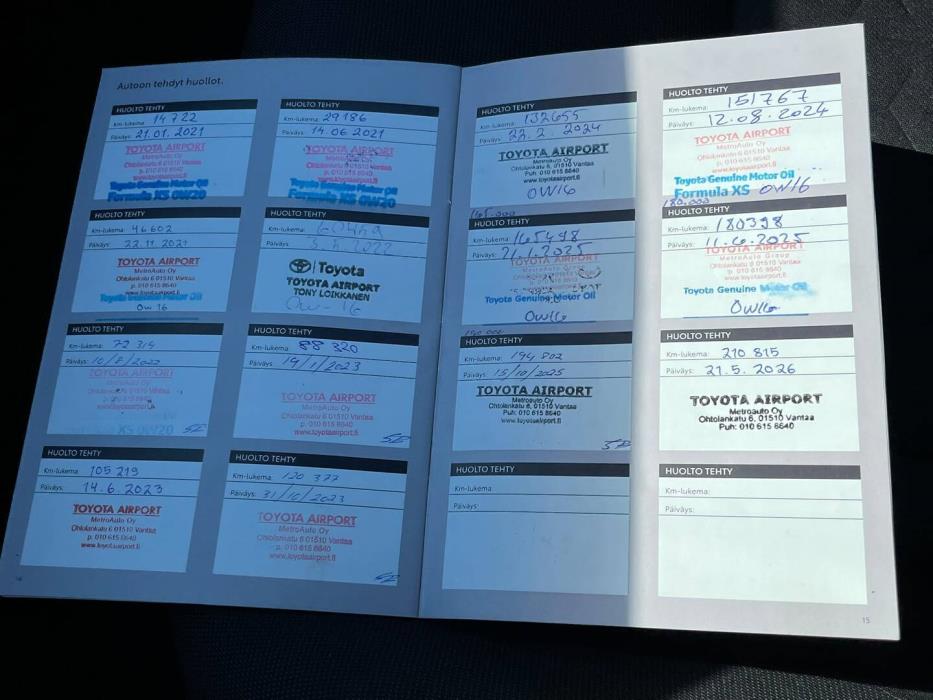 Autoon tehdyt huollot.
HUOLTO TEHTY
Km-lukema: 14 722
Päiväys: 21.01.2021
TOYOTA AIRPORT
MetroAuto Oy
Ohtolankatu 6 01510 Vantaa
p. 010 615 8640
www.toyotaairport.fi
Toyota Genuine Motor Oil
Formula XS 0W20
HUOLTO TEHTY
Km-lukema: 29186
Päiväys: 14.06.2021
TOYOTA AIRPORT
MetroAuto Oy
Ohtolankatu 6 01510 Vantaa
p. 010 615 8640
www.toyotaairport.fi
Toyota Genuine Motor Oil
Formula XS 0W20
HUOLTO TEHTY
Km-lukema: 46602
Päiväys: 22.11.2021
TOYOTA AIRPORT
MetroAuto Oy
Ohtolankatu 6 01510 Vantaa
p. 010 615 8640
www.toyotaairport.fi
Toyota Genuine Motor Oil
0w 16
HUOLTO TEHTY
Km-lukema:
Päiväys: 2022
Toyota
TOYOTA AIRPORT
TONY LOIKKANEN
0w-16
HUOLTO TEHTY
Km-lukema: 72 314
Päiväys: 10/8/2022
TOYOTA AIRPORT
MetroAuto Oy
Ohtolankatu 6 01510 Vantaa
p. 010 615 8640
www.toyotaairport.fi
XS 0W20
HUOLTO TEHTY
Km-lukema: 88 320
Päiväys: 19/1/2023
TOYOTA AIRPORT
MetroAuto Oy
Ohtolankatu 6 01510 Vantaa
p. 010 615 8640
www.toyotaairport.fi
HUOLTO TEHTY
Km-lukema: 105 219
Päiväys: 14.6.2023
TOYOTA AIRPORT
MetroAuto Oy
Ohtolankatu 6 01510 Vantaa
p. 010 615 8640
www.toyotaairport.fi
HUOLTO TEHTY
Km-lukema: 120 377
Päiväys: 31/10/2023
TOYOTA AIRPORT
MetroAuto Oy
Ohtolankatu 6 01510 Vantaa
p. 010 615 8640
www.toyotaairport.fi
HUOLTO TEHTY
Km-lukema: 132655
Päiväys: 22.2.2024
TOYOTA AIRPORT
Metroauto Oy
Ohtolankatu 6, 01510 Vantaa
Puh: 010 615 8640
www.toyotaairport.fi
0W16
HUOLTO TEHTY
Km-lukema: 151767
Päiväys: 12.08.2024
TOYOTA AIRPORT
MetroAuto Oy
Ohtolankatu 6 01510 Vantaa
p. 010 615 8640
www.toyotaairport.fi
Toyota Genuine Motor Oil
Formula XS 0W16
165.000
HUOLTO TEHTY
Km-lukema: 165498
Päiväys: 21.1.2025
TOYOTA AIRPORT
Toyota Genuine Motor Oil
0W16
180.000
HUOLTO TEHTY
Km-lukema: 180398
Päiväys: 11.6.2025
TOYOTA AIRPORT
MetroAuto Group
Ohtolankatu 6 01510 Vantaa
p. 010 615 8640
www.toyotaairport.fi
Toyota Genuine Motor Oil
0W16
HUOLTO TEHTY
Km-lukema: 194 802
Päiväys: 15/10/2025
TOYOTA AIRPORT
Metroauto Oy
Ohtolankatu 6, 01510 Vantaa
Puh: 010 615 8640
www.toyotaairport.fi
HUOLTO TEHTY
Km-lukema: 210 815
Päiväys: 21.5.2026
TOYOTA AIRPORT
Metroauto Oy
Ohtolankatu 6, 01510 Vantaa
Puh: 010 615 8640
HUOLTO TEHTY
Km-lukema:
Päiväys:
HUOLTO TEHTY
Km-lukema:
Päiväys:
14
15